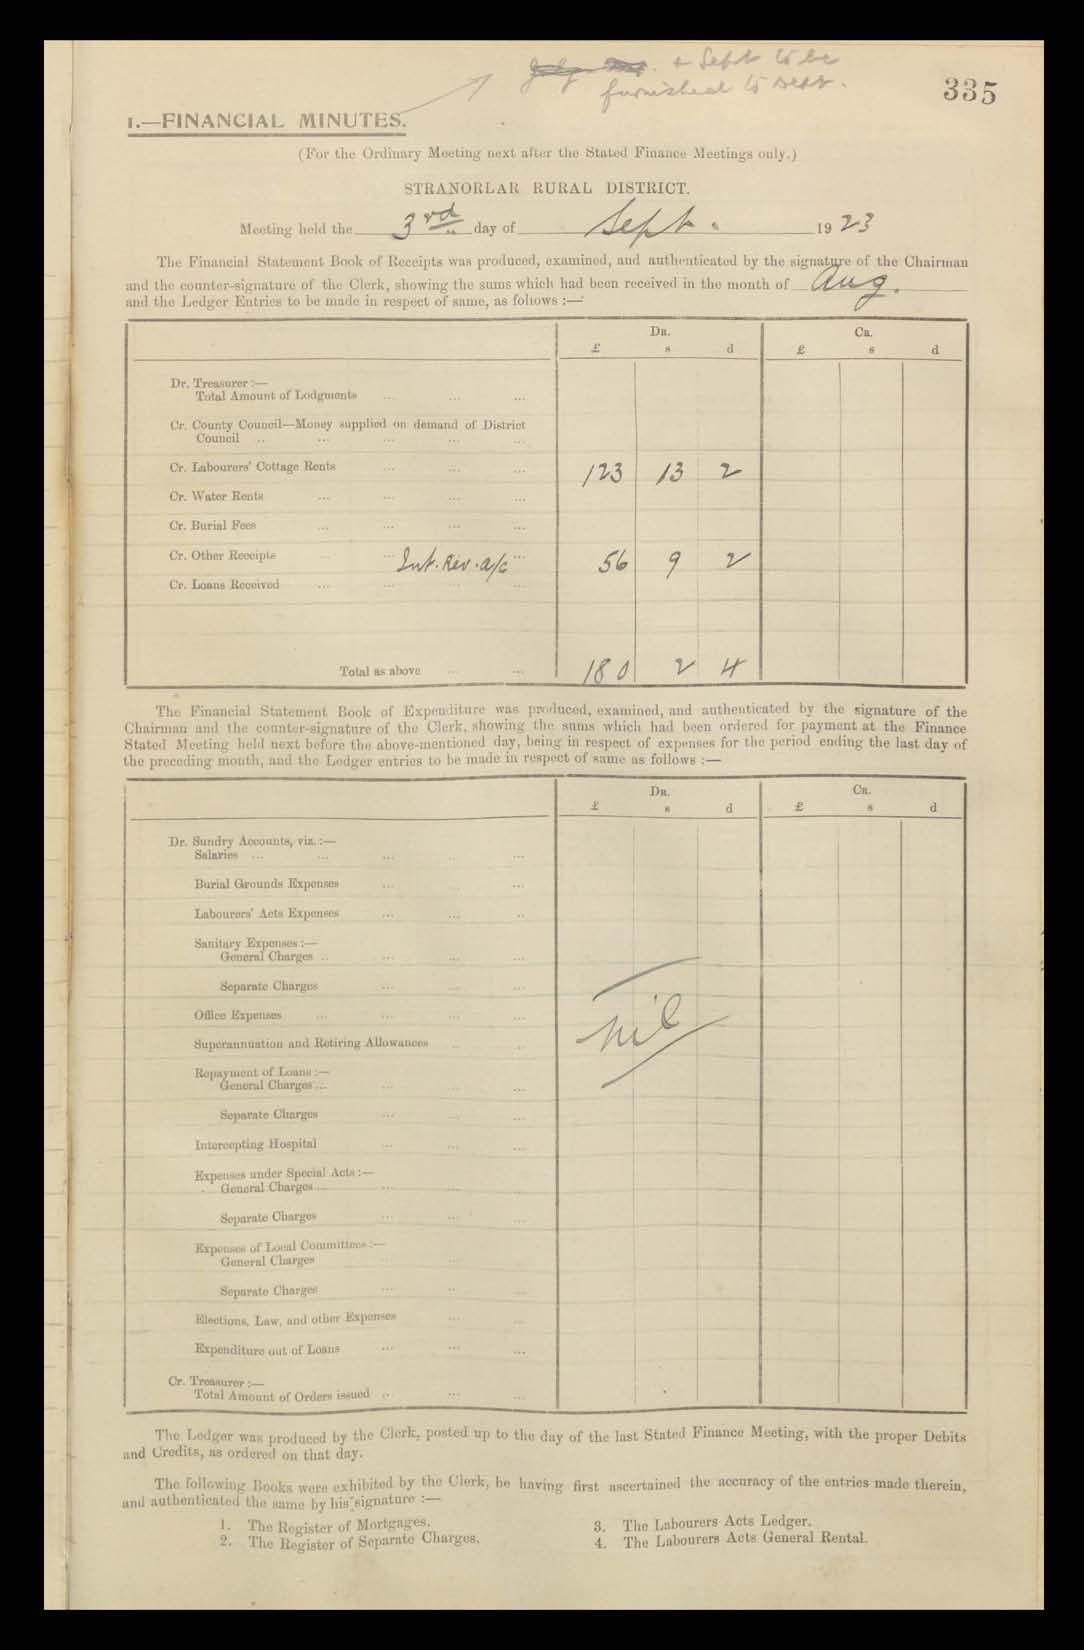 + Sept to be
furnished to Dept.
335
1.—FINANCIAL MINUTES.
(For the Ordinary Meeting next after the Stated Finance Meetings only.)
STRANORLAR RURAL DISTRICT.
Meeting held the 3rd day of Sept. 1923
The Financial Statement Book of Receipts was produced, examined, and authenticated by the signature of the Chairman
and the counter-signature of the Clerk, showing the sums which had been received in the month of Aug.
and the Ledger Entries to be made in respect of same, as follows :—
Dr. Cr.
£ s d £ s d
Dr. Treasurer :—
Total Amount of Lodgments ... ... ...
Cr. County Council—Money supplied on demand of District
Council .. ... ... ... ...
Cr. Labourers' Cottage Rents ... ... ... 123 13 2
Cr. Water Rents ... ... ... ...
Cr. Burial Fees ... ... ... ...
Cr. Other Receipts ... ... Int. Rev. a/c ... 56 9 2
Cr. Loans Received ... ... ... ...
Total as above ... ... 180 2 4
The Financial Statement Book of Expenditure was produced, examined, and authenticated by the signature of the
Chairman and the counter-signature of the Clerk, showing the sums which had been ordered for payment at the Finance
Stated Meeting held next before the above-mentioned day, being in respect of expenses for the period ending the last day of
the preceding month, and the Ledger entries to be made in respect of same as follows :—
Dr. Cr.
£ s d £ s d
Dr. Sundry Accounts, viz. :—
Salaries ... ... ... ... ...
Burial Grounds Expenses ... ... ...
Labourers' Acts Expenses ... ... ..
Sanitary Expenses :—
General Charges .. ... ... ...
Separate Charges ... ... ...
Office Expenses ... ... ... ...
nil
Superannuation and Retiring Allowances .. ..
Repayment of Loans :—
General Charges ... ... ... ...
Separate Charges ... ... ...
Intercepting Hospital ... ... ...
Expenses under Special Acts :—
General Charges ... ... ...
Separate Charges ... ... ...
Expenses of Local Committees :—
General Charges ... ...
Separate Charges ... .. ...
Elections, Law, and other Expenses ... ...
Expenditure out of Loans ... ... ...
Cr. Treasurer :—
Total Amount of Orders issued .. ... ...
The Ledger was produced by the Clerk, posted up to the day of the last Stated Finance Meeting, with the proper Debits
and Credits, as ordered on that day.
The following Books were exhibited by the Clerk, he having first ascertained the accuracy of the entries made therein,
and authenticated the same by his signature :—
1. The Register of Mortgages. 3. The Labourers Acts Ledger.
2. The Register of Separate Charges. 4. The Labourers Acts General Rental.